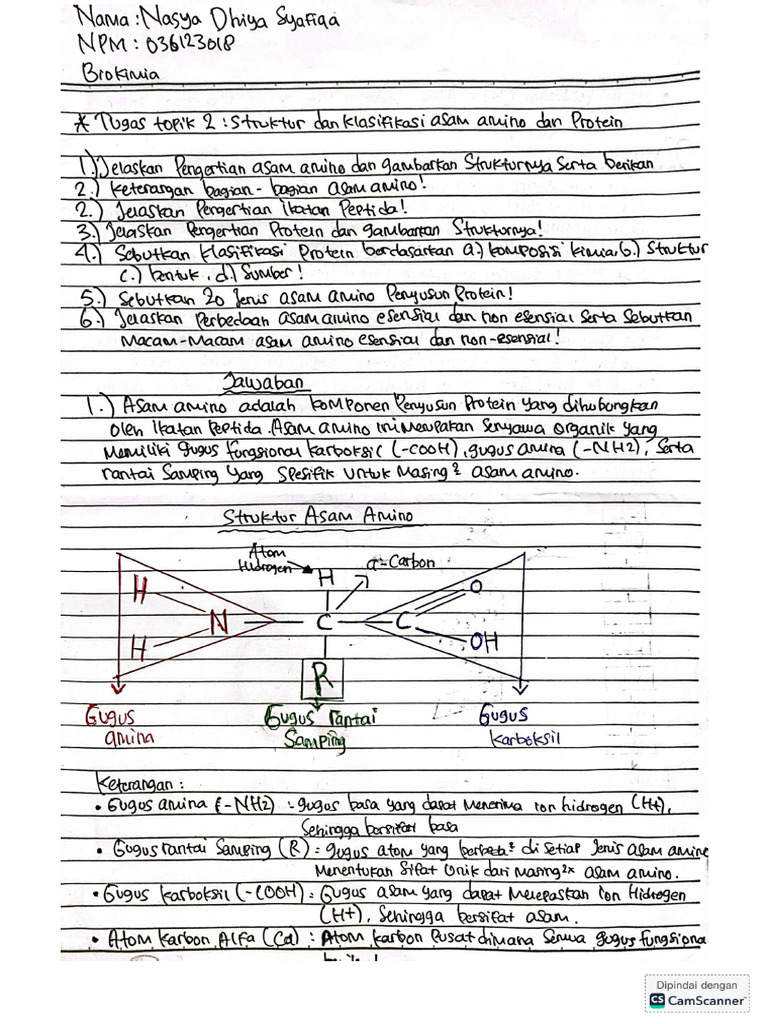 Nama : Nasya Dhiya Syafiqa
NPM : 036123018
Biokimia
* Tugas topik 2 : Struktur dan klasifikasi asam amino dan Protein
1.) Jelaskan Pengertian asam amino dan gambarkan Strukturnya Serta berikan
2.) keterangan bagian-bagian asam amino!
2.) Jelaskan Pengertian ikatan Peptida!
3.) Jelaskan Pengertian Protein dan gambarkan Strukturnya!
4.) Sebutkan klasifikasi Protein berdasarkan a.) komposisi kimia. b.) Struktur
c.) bentuk. d.) Sumber!
5.) Sebutkan 20 Jenis asam amino Penyusun Protein!
6.) Jelaskan Perbedaan asam amino esensial dan non esensial Serta Sebutkan
Macam-Macam asam amino esensial dan non-esensial!
Jawaban
1.) Asam amino adalah komponen Penyusun Protein yang dihubungkan
oleh ikatan Peptida. Asam amino ini merupakan Senyawa organik yang
Memiliki gugus fungsional karboksil (-COOH), gugus amina (-NH2), Serta
rantai Samping yang Spesifik untuk Masing² asam amino.
Struktur Asam Amino
Atom
Hidrogen
α-Carbon
H
H
O
N
C
C
H
OH
R
Gugus
amina
Gugus rantai
Samping
Gugus
karboksil
Keterangan :
• Gugus amina (-NH2) : gugus basa yang dapat Menerima ion hidrogen (H+),
Sehingga bersifat basa
• Gugus rantai Samping (R) : gugus atom yang berbeda² di Setiap Jenis asam amino
Menentukan Sifat Unik dari Masing²x asam amino.
• Gugus karboksil (-COOH) : Gugus asam yang dapat Melepaskan Ion Hidrogen
(H+), Sehingga bersifat asam.
• Atom Karbon Alfa (Cα) : Atom karbon Pusat dimana Semua gugus fungsiona
Dipindai dengan
CS CamScanner